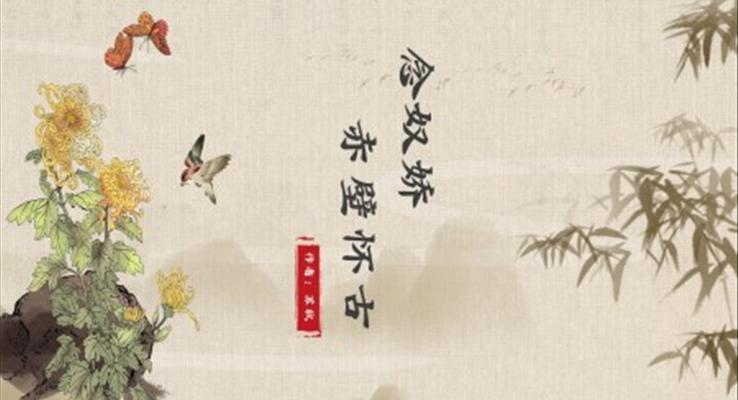 念奴娇
赤壁怀古
作者：苏轼